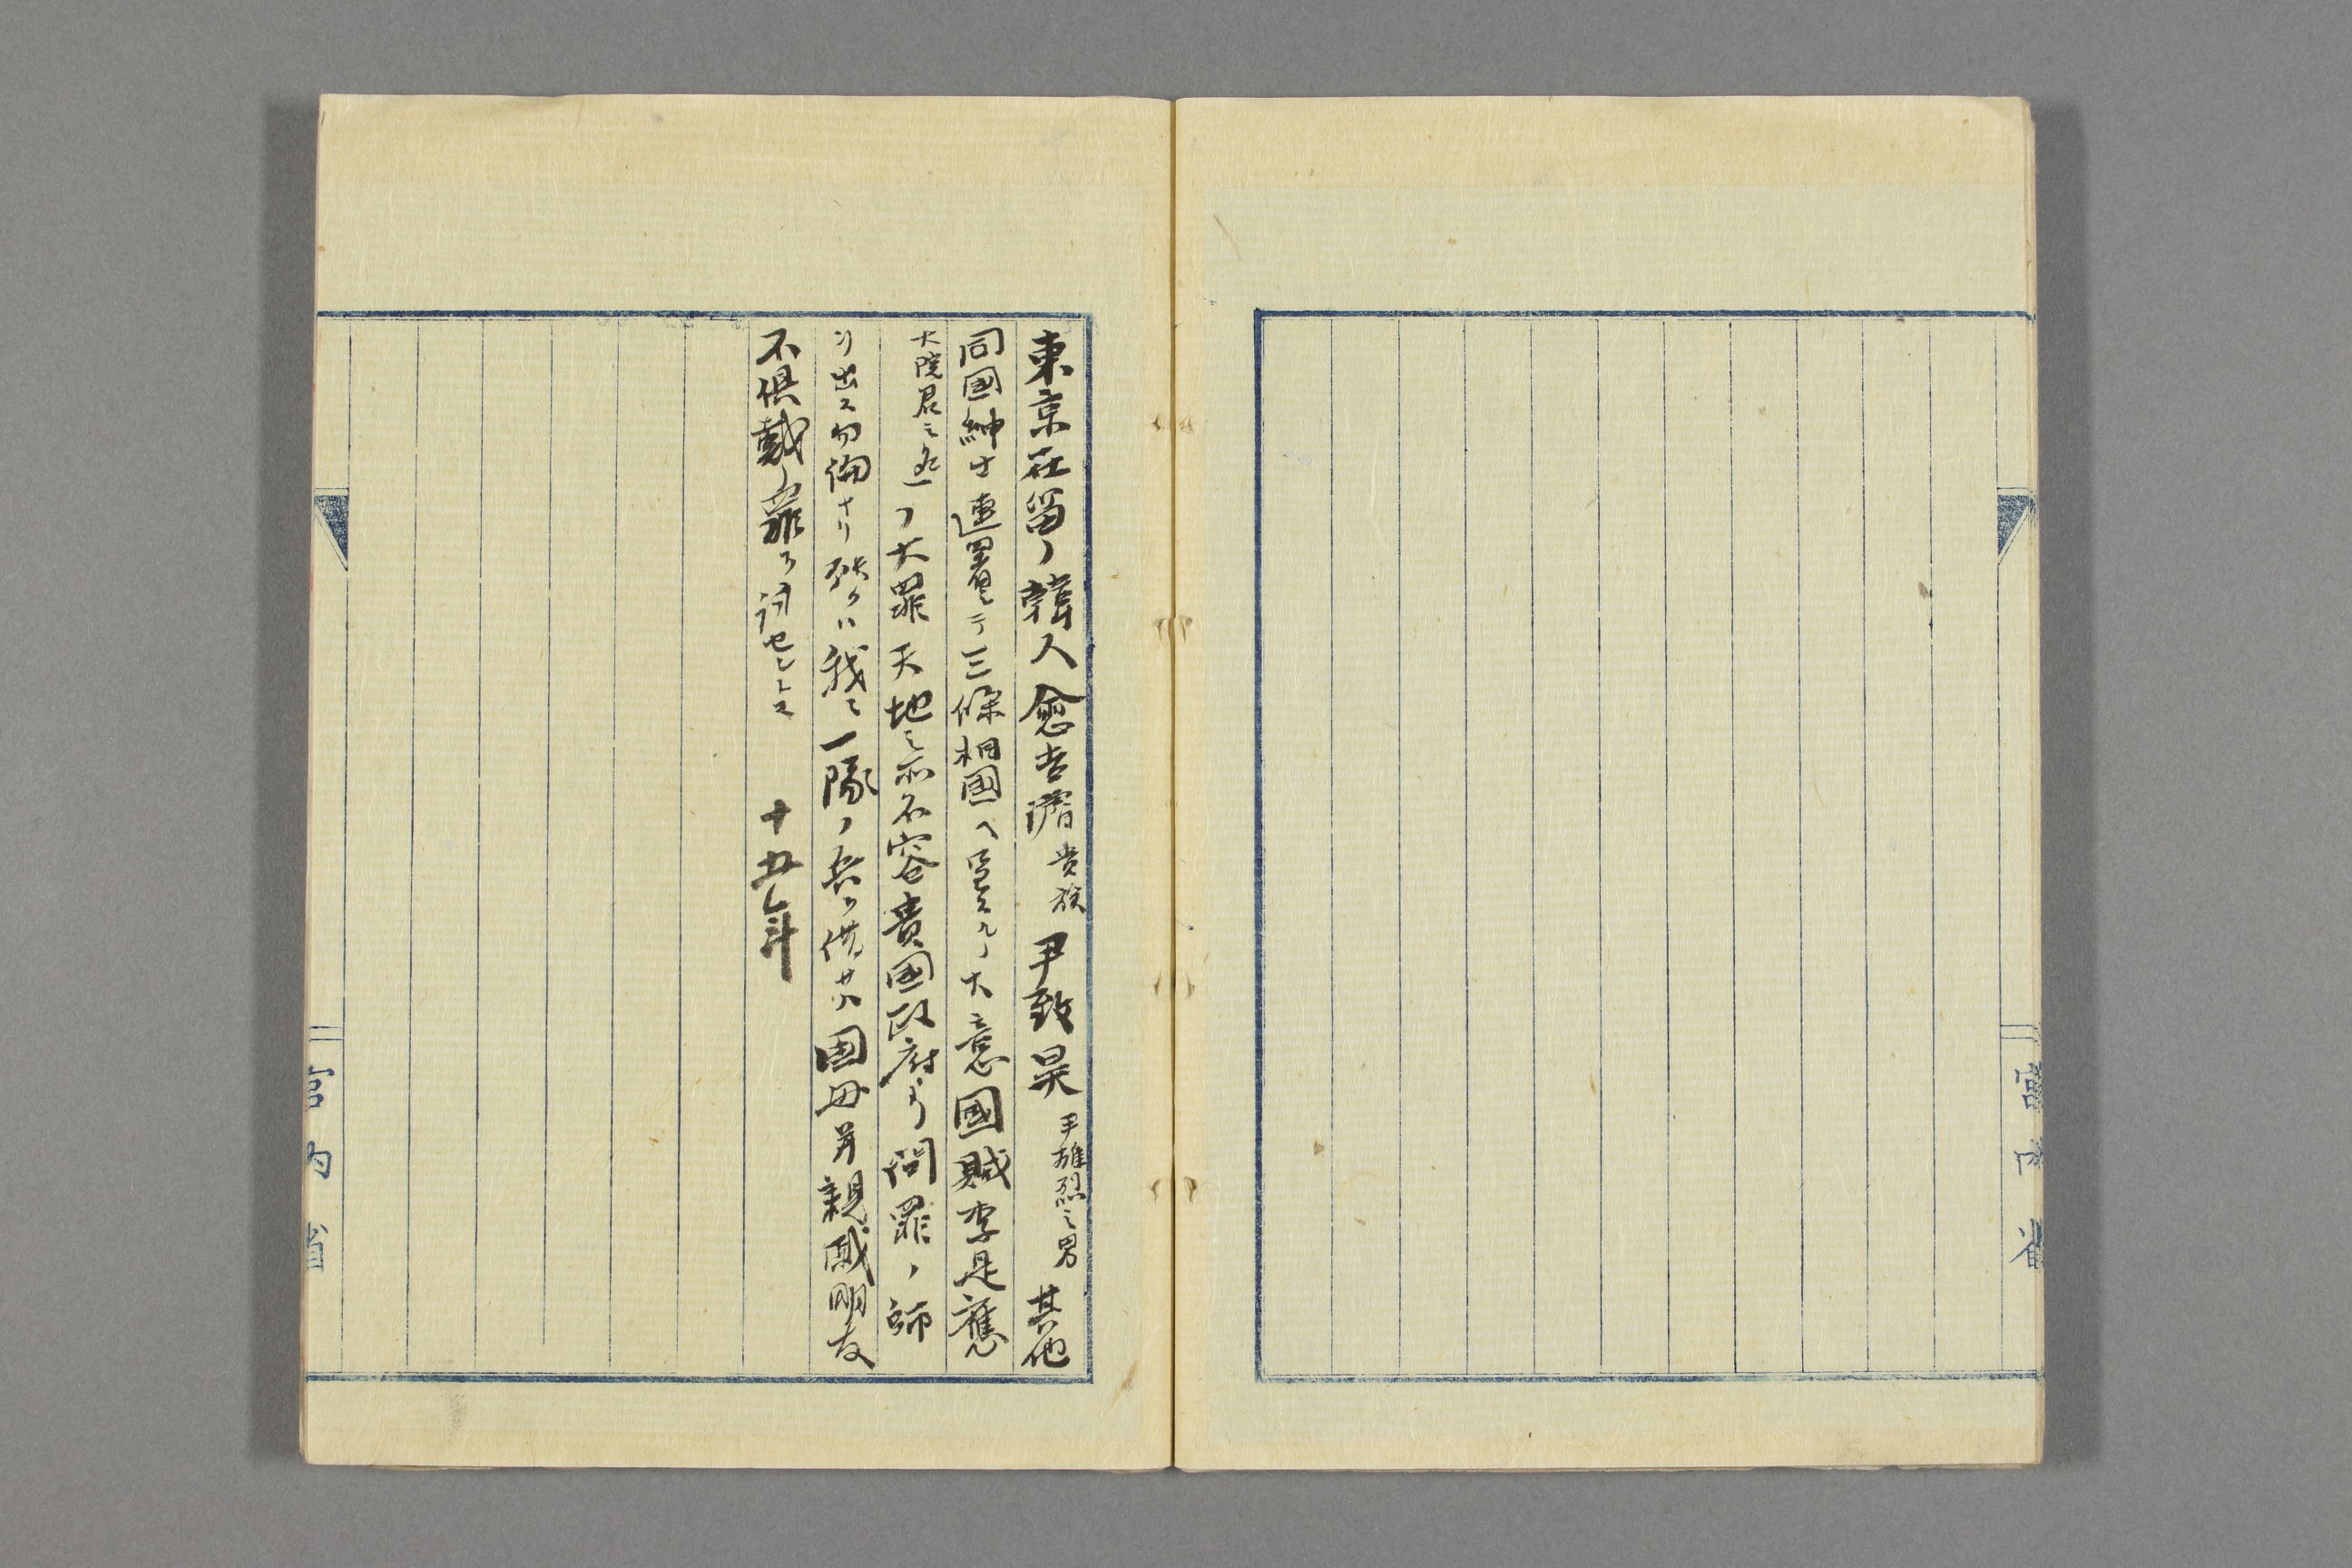 東京在留ノ韓人愈吉濬貴族尹致昊尹雄烈之男其他
同國紳士連署シテ三條相國ヘ呈スルノ大意國賊李是應
大院君之名ノ大罪天地之所不容貴國政府ヨリ問罪ノ師
ヲ出ス勿論ナリ我ニ一隊ノ兵ヲ借サハ国母并親戚朋友
不俱戴ノ罪ヲ討セント云 十五年
宮内省
宮内省